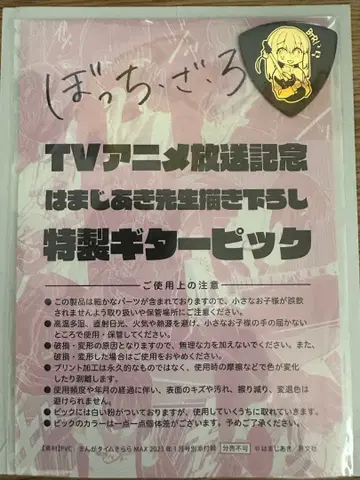 BRI
ぼっち・ざ・ろ
TVアニメ放送記念
はまじあき先生描き下ろし
特製ギターピック
ご使用上の注意
●この製品は細かなパーツが含まれておりますので、小さなお子様が誤飲
されませんよう取り扱いや保管場所にご注意ください。
●高温多湿、直射日光、火気や熱源を避け、小さなお子様の手の届かない
ところで使用・保管してください。
●破損・変形の原因となりますので、無理な力を加えないでください。また、
破損・変形した場合はご使用をおやめください。
●プリント加工は永久的なものではなく、使用時の摩擦などで色が変化
したり剥離します。
●使用頻度や年月の経過に伴い、表面のキズや汚れ、擦り減り、変退色は
避けられません。
●ピックには白い粉がついておりますが、使用していくうちに取れていきます。
●ピックのカラーは一点一点個体差がございます。予めご了承ください。
【素材】PVC まんがタイムきららMAX 2023年1月号別添付録 分売不可 ©はまじあき/芳文社